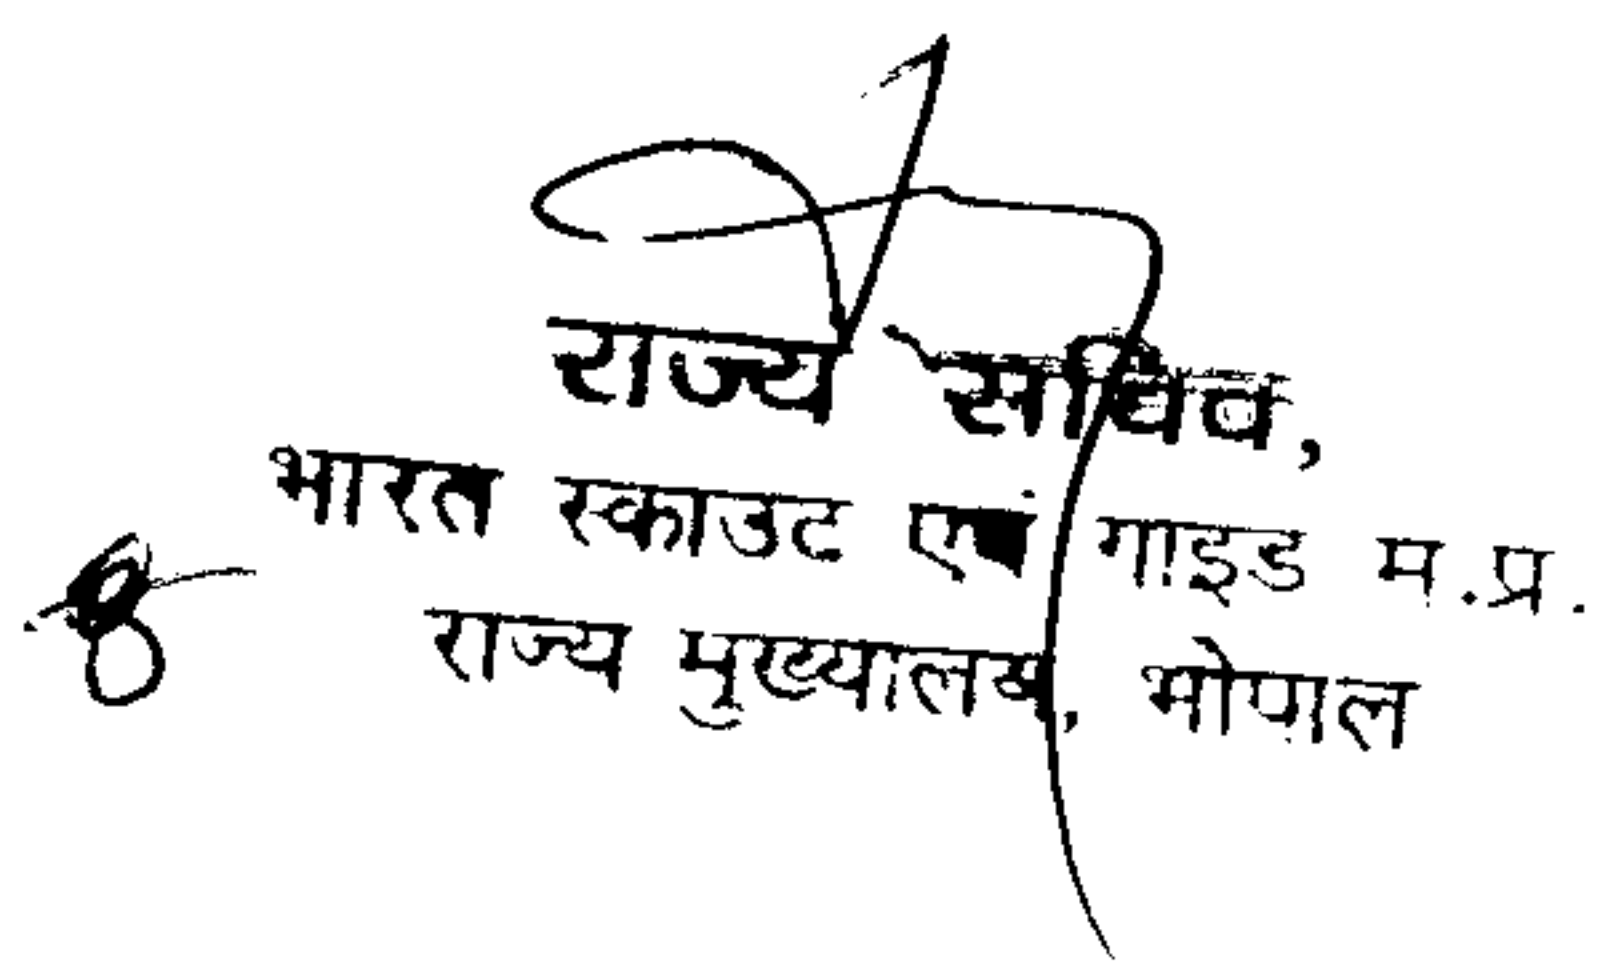 राज्य सचिव,
भारत स्काउट एवं गाइड म.प्र.
राज्य मुख्यालय, भोपाल